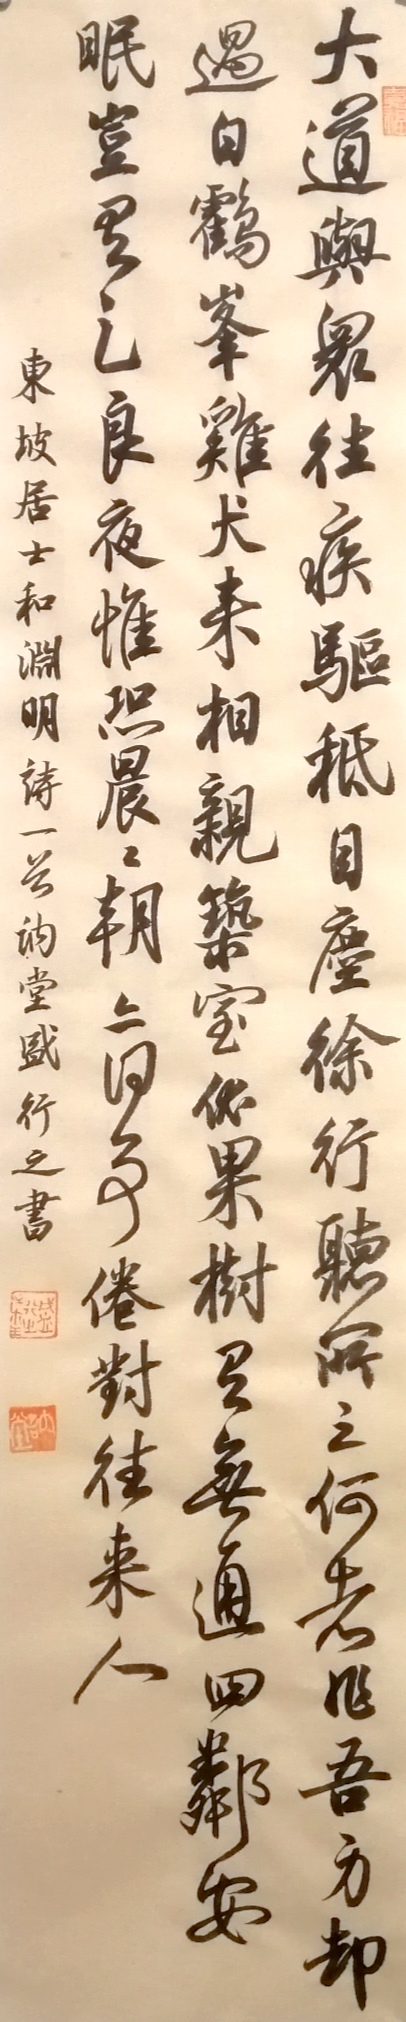 大道與眾往疾驅秪自塵徐行聽所之何者非吾方却
過白鶴峯雞犬来相親築室依果樹有無通四鄰安
眠豈有之良夜惟恐晨晨朝亦何事倦對往来人
東坡居士和淵明詩一首訥堂盛行之書